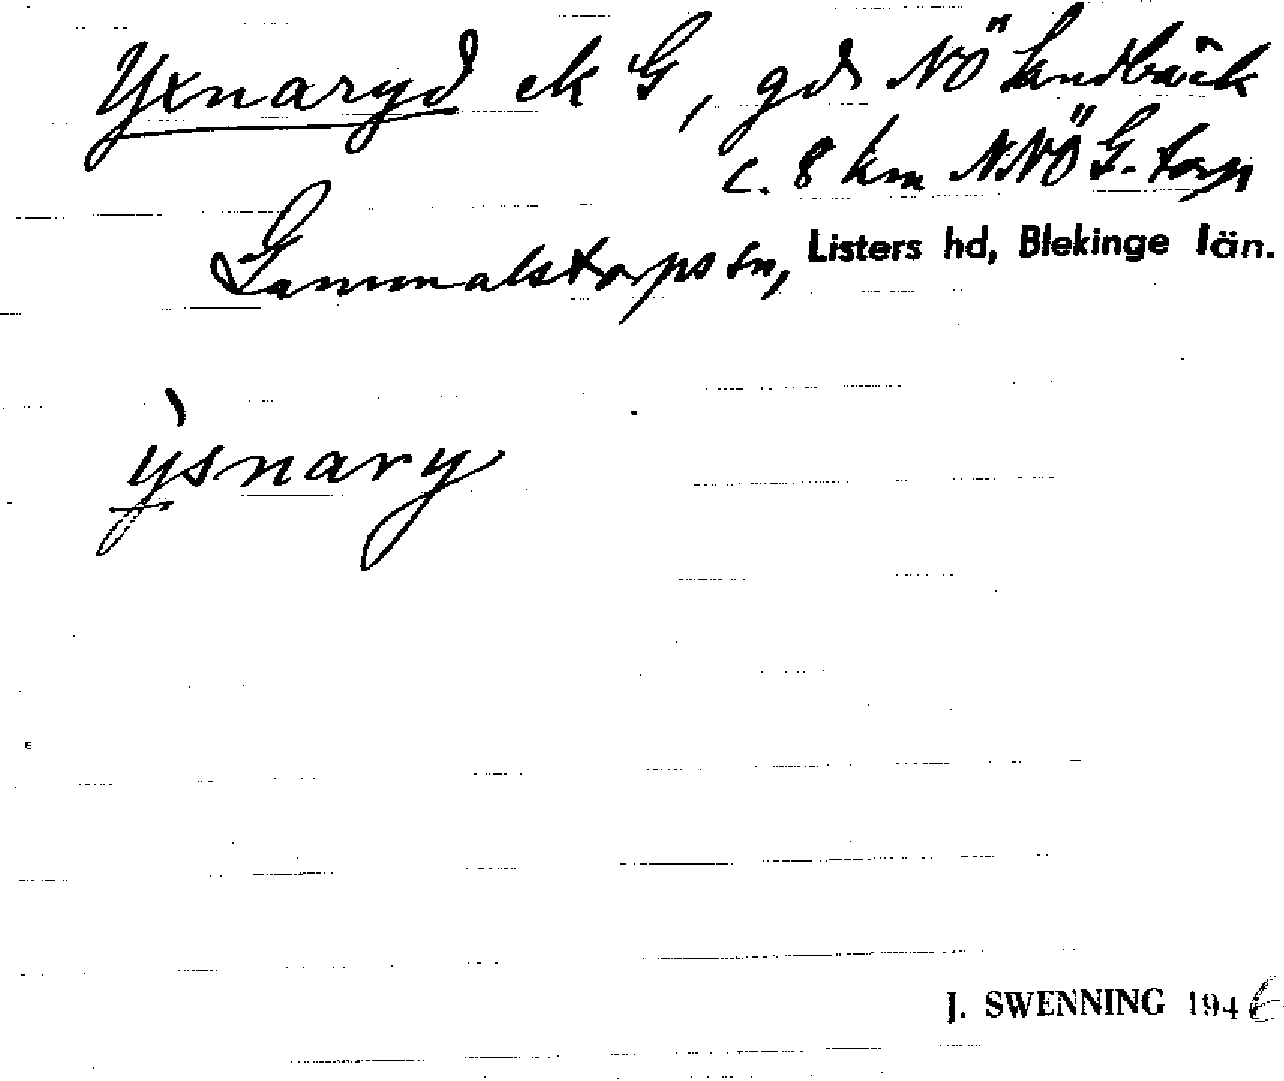 Yxnaryd ek G, gdr NÖ Sandbäck
c. 8 km NNÖ G-torp
Gammalstorps sn, Listers hd, Blekinge län.
ỳsnary
J. SWENNING 1946